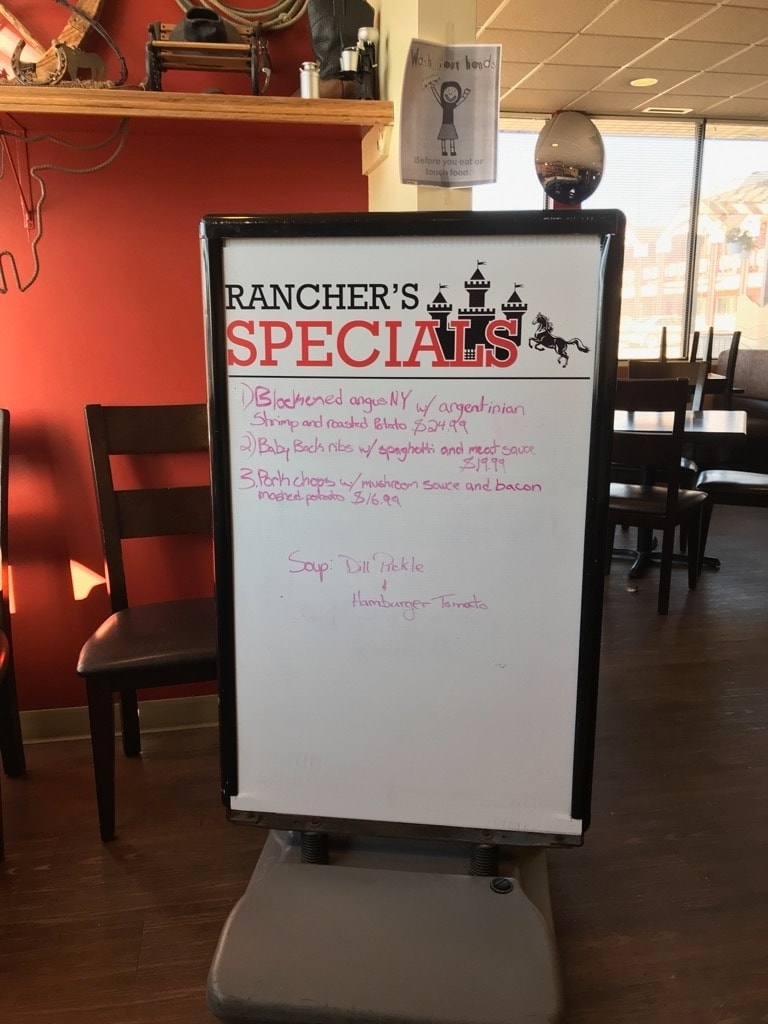 Wash your hands
Before you eat or
touch food.
RANCHER'S
SPECIALS
1) Blackened angus NY w/ argentinian
Shrimp and roasted Potato $24.99
2) Baby Back ribs w/ spaghetti and meat sauce
$19.99
3. Pork chops w/ mushroom sauce and bacon
mashed potato $16.99
Soup: Dill Pickle
&
Hamburger Tomato